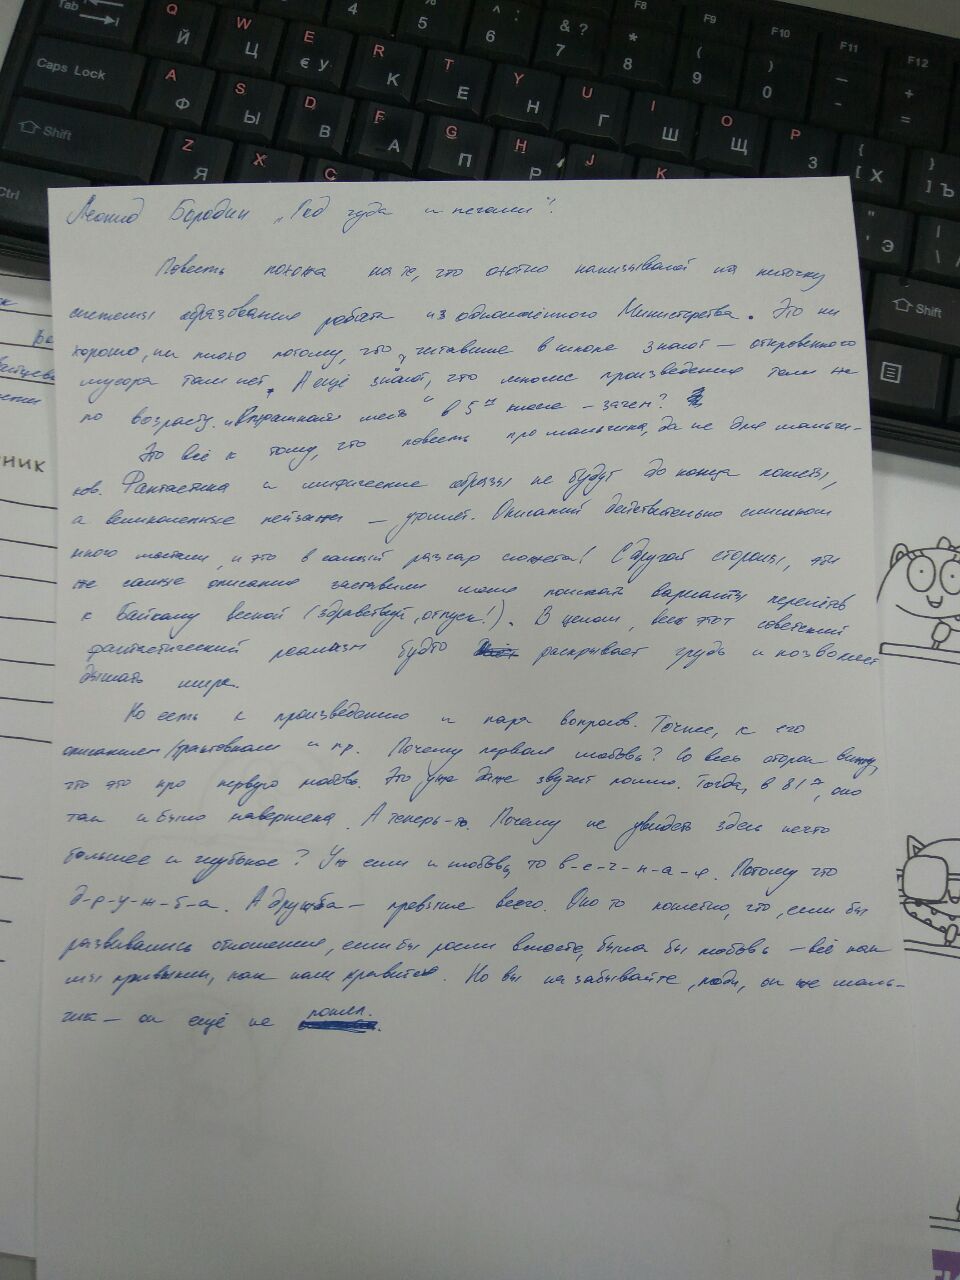 Tab Q Й W Ц E € У R К T Е Y Н U Г I Ш O Щ P З { [ Х } ] Ъ
4 % 5 ^ : 6 & ? 7 * 8 ( 9 ) 0 — - + =
F8 F9 F10 F11 F12
Caps Lock A Ф S Ы D В F А G П H Р J K " ' Э | \
Shift Z Я X C Shift
Ctrl
НИК
Леонид Бородин „Год чуда и печали".
Повесть похожа на те, что охотно нанизывает на ниточку
системы образования ребята из одноимённого Министерства. Это ни
хорошо, ни плохо потому, что читавшие в школе знают — откровенного
мусора там нет. А ещё знают, что многие произведения там не
по возрасту. „Страшная месть" в 5м классе – зачем?
Это всё к тому, что повесть про мальчика, да не для мальчи-
ков. Фантастика и мифические образы не будут до конца поняты,
а великолепные пейзажи — утомят. Описаний действительно слишком
много местами, и это в самый разгар сюжета! С другой стороны, эти
же самые описания заставили меня поискать варианты перелётов
к Байкалу весной (здравствуй, отпуск!). В целом, весь этот советский
фантастический реализм будто раскрывает грудь и позволяет
дышать шире.
Но есть к произведению и пара вопросов. Точнее, к его
описаниям/трактовкам и пр. Почему первая любовь? Со всех сторон вижу,
что это про первую любовь. Это уже даже звучит пошло. Тогда, в 81м, оно
так и было наверняка. А теперь-то. Почему не увидеть здесь нечто
большее и глубокое? Уж если и любовь, то в-е-ч-н-а-я. Потому что
д-р-у-ж-б-а. А дружба — превыше всего. Оно то понятно, что, если бы
развивались отношения, если бы росли вместе, была бы любовь — всё как
мы привыкли, как нам нравится. Но вы не забывайте, люди, он же маль-
чик — он ещё не пошл.